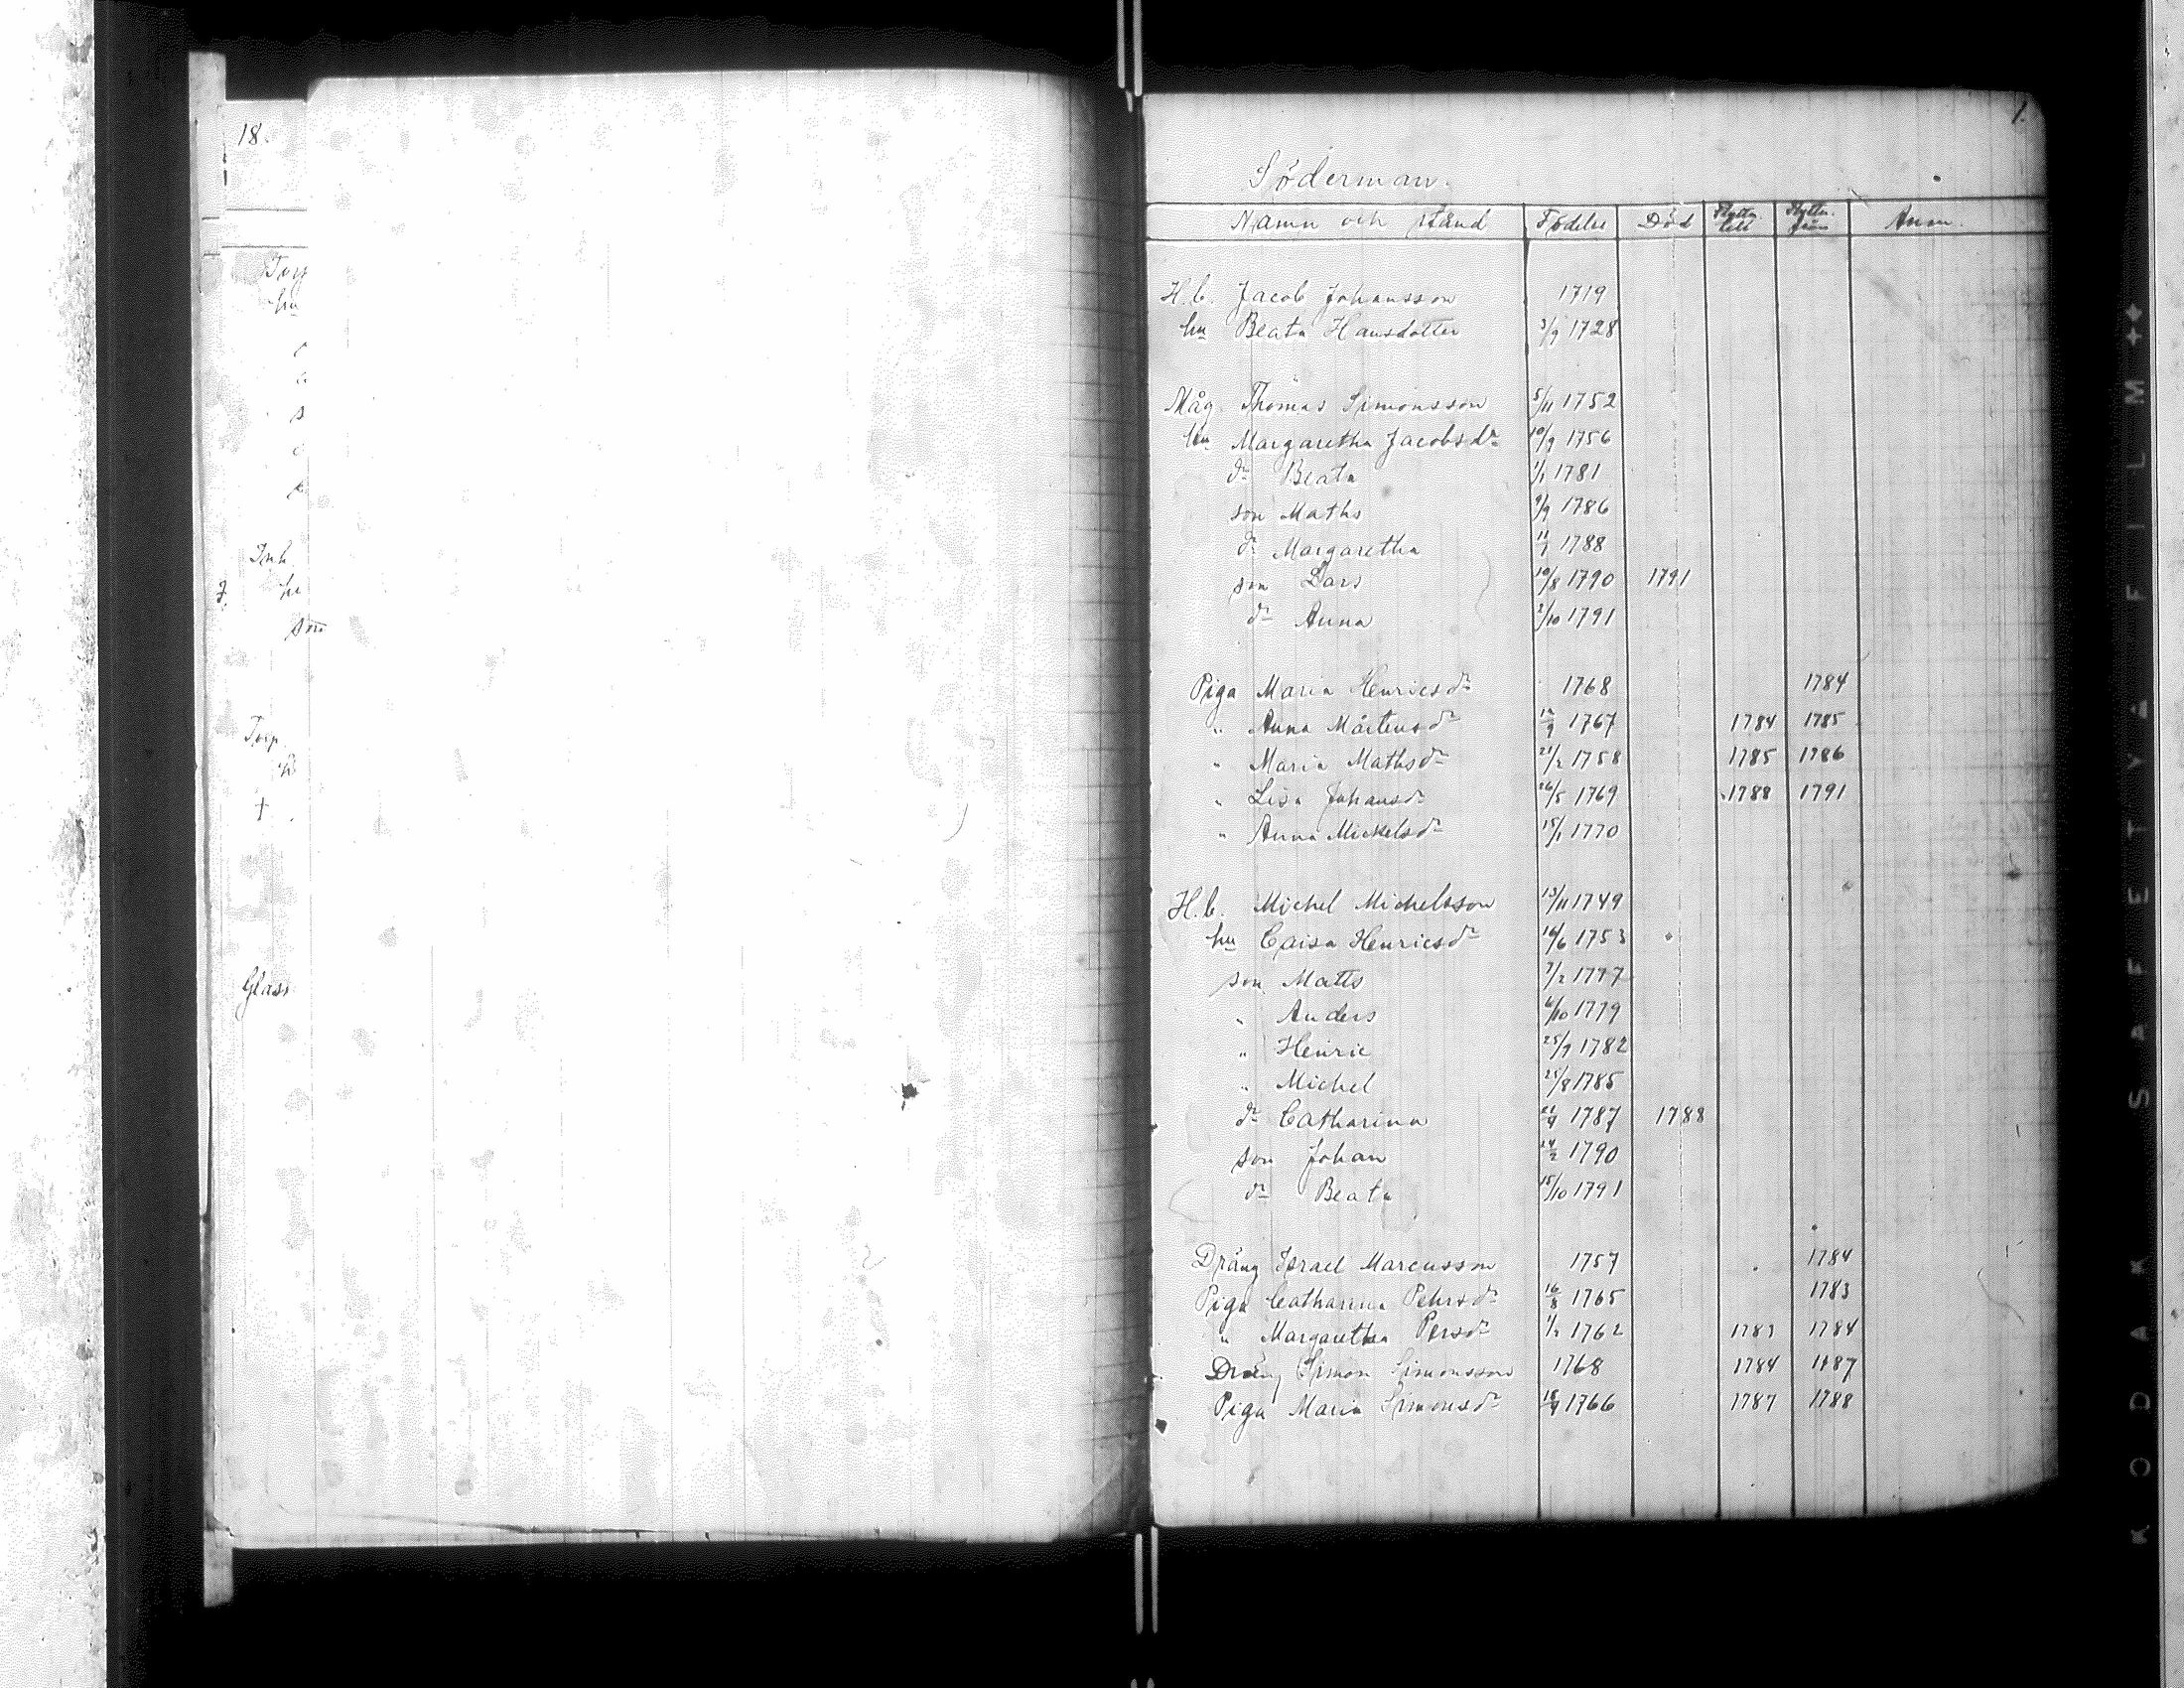 18.
Torp
hu
Inh
hu
son
Torp
+
Glas
1.
Söderman.
Namn och stånd Födelse Död Flytta till Flytta från Anm.
H.b. Jacob Johansson 1719
hu Beata Hansdotter 3/9 1728
Måg Thomas Simonsson 5/11 1752
hu Margaretha Jacobsdr 10/9 1756
dr Beata 1/1 1781
son Maths 9/9 1786
dr Margaretha 11/1 1788
son Lars 10/8 1790 1791
dr Anna 2/10 1791
Piga Maria Henricsdr 1768 1784
" Anna Mårtensdr 12/9 1767 1784 1785
" Maria Mathsdr 21/2 1758 1785 1786
" Lisa Johansdr 26/5 1769 1788 1791
" Anna Mickelsdr 15/1 1770
H.b. Michel Michelsson 13/11 1749
hu Caisa Henricsdr 16/6 1753
son Matts 7/2 1777
" Anders 6/10 1779
" Henric 25/9 1782
" Michel 25/8 1785
dr Catharina 21/4 1787 1788
son Johan 24/2 1790
dr Beata 15/10 1791
Dräng Israel Marcusson 1757 1784
Piga Catharina Pehrsdr 16/8 1765 1783
" Margaretha Persdr 1/2 1762 1783 1784
Dräng Simon Simonsson 1768 1784 1787
Piga Maria Simonsdr 18/9 1766 1787 1788
KODAK SAFETY FILM